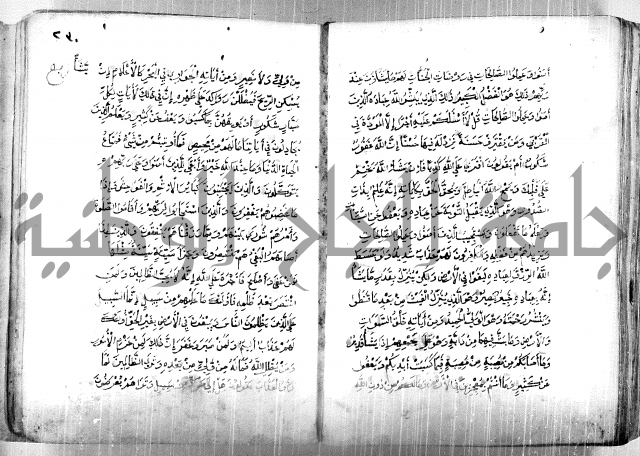 آمنوا وعملوا الصالحات في روضات الجنات لهم ما يشاؤن عند
ربهم ذلك هو الفضل الكبير ذلك الذي يبشر الله عباده الذين
آمنوا وعملوا الصالحات قل لا اسئلكم عليه اجرا الا المودة في
القربى ومن يقترف حسنة نزد له فيها حسنا ان الله غفور
شكور ام يقولون افترى على الله كذبا فان يشاء الله يختم
على قلبك ويمح الله الباطل ويحق الحق بكلماته انه عليم بذات
الصدور وهو الذي يقبل التوبة عن عباده ويعفو عن السيئات
ويعلم ما تفعلون ويستجيب الذين آمنوا وعملوا الصالحات
ويزيدهم من فضله والكافرون لهم عذاب شديد ولو بسط
الله الرزق لعباده لبغوا في الارض ولكن ينزل بقدر ما يشاء
انه بعباده خبير بصير وهو الذي ينزل الغيث من بعد ما قنطوا
وينشر رحمته وهو الولي الحميد ومن آياته خلق السموات
والارض وما بث فيهما من دابة وهو على جمعهم اذا يشاء قدير
وما اصابكم من مصيبة فبما كسبت ايديكم ويعفو
عن كثير وما انتم بمعجزين في الارض وما لكم من دون الله
من ولي ولا نصير ومن آياته الجوار في البحر كالاعلام ان
يشأ
يسكن الريح فيظللن رواكد على ظهره ان في ذلك لآيات لكل
صبار شكور او يوبقهن بما كسبوا ويعف عن كثير ويعلم الذين
يجادلون في آياتنا ما لهم من محيص فما اوتيتم من شيء فمتاع
الحياة الدنيا وما عند الله خير وابقى للذين آمنوا وعلى ربهم
يتوكلون والذين يجتنبون كبائر الاثم والفواحش واذا
ما غضبوا هم يغفرون والذين استجابوا لربهم واقاموا الصلوة
وامرهم شورى بينهم ومما رزقناهم ينفقون والذين اذا
اصابهم البغي هم ينتصرون وجزاء سيئة سيئة مثلها
فمن عفى واصلح فاجره على الله انه لا يحب الظالمين ولمن
انتصر بعد ظلمه فاولئك ما عليهم من سبيل انما السبيل
على الذين يظلمون الناس ويبغون في الارض بغير الحق اولئك
لهم عذاب اليم ولمن صبر وغفر ان ذلك لمن عزم الامور
ومن يضلل الله فما له من ولي من بعده وترى الظالمين لما
راوا العذاب يقولون هل الى مرد من سبيل وتراهم يعرضون
جامعة النجاح الوطنية